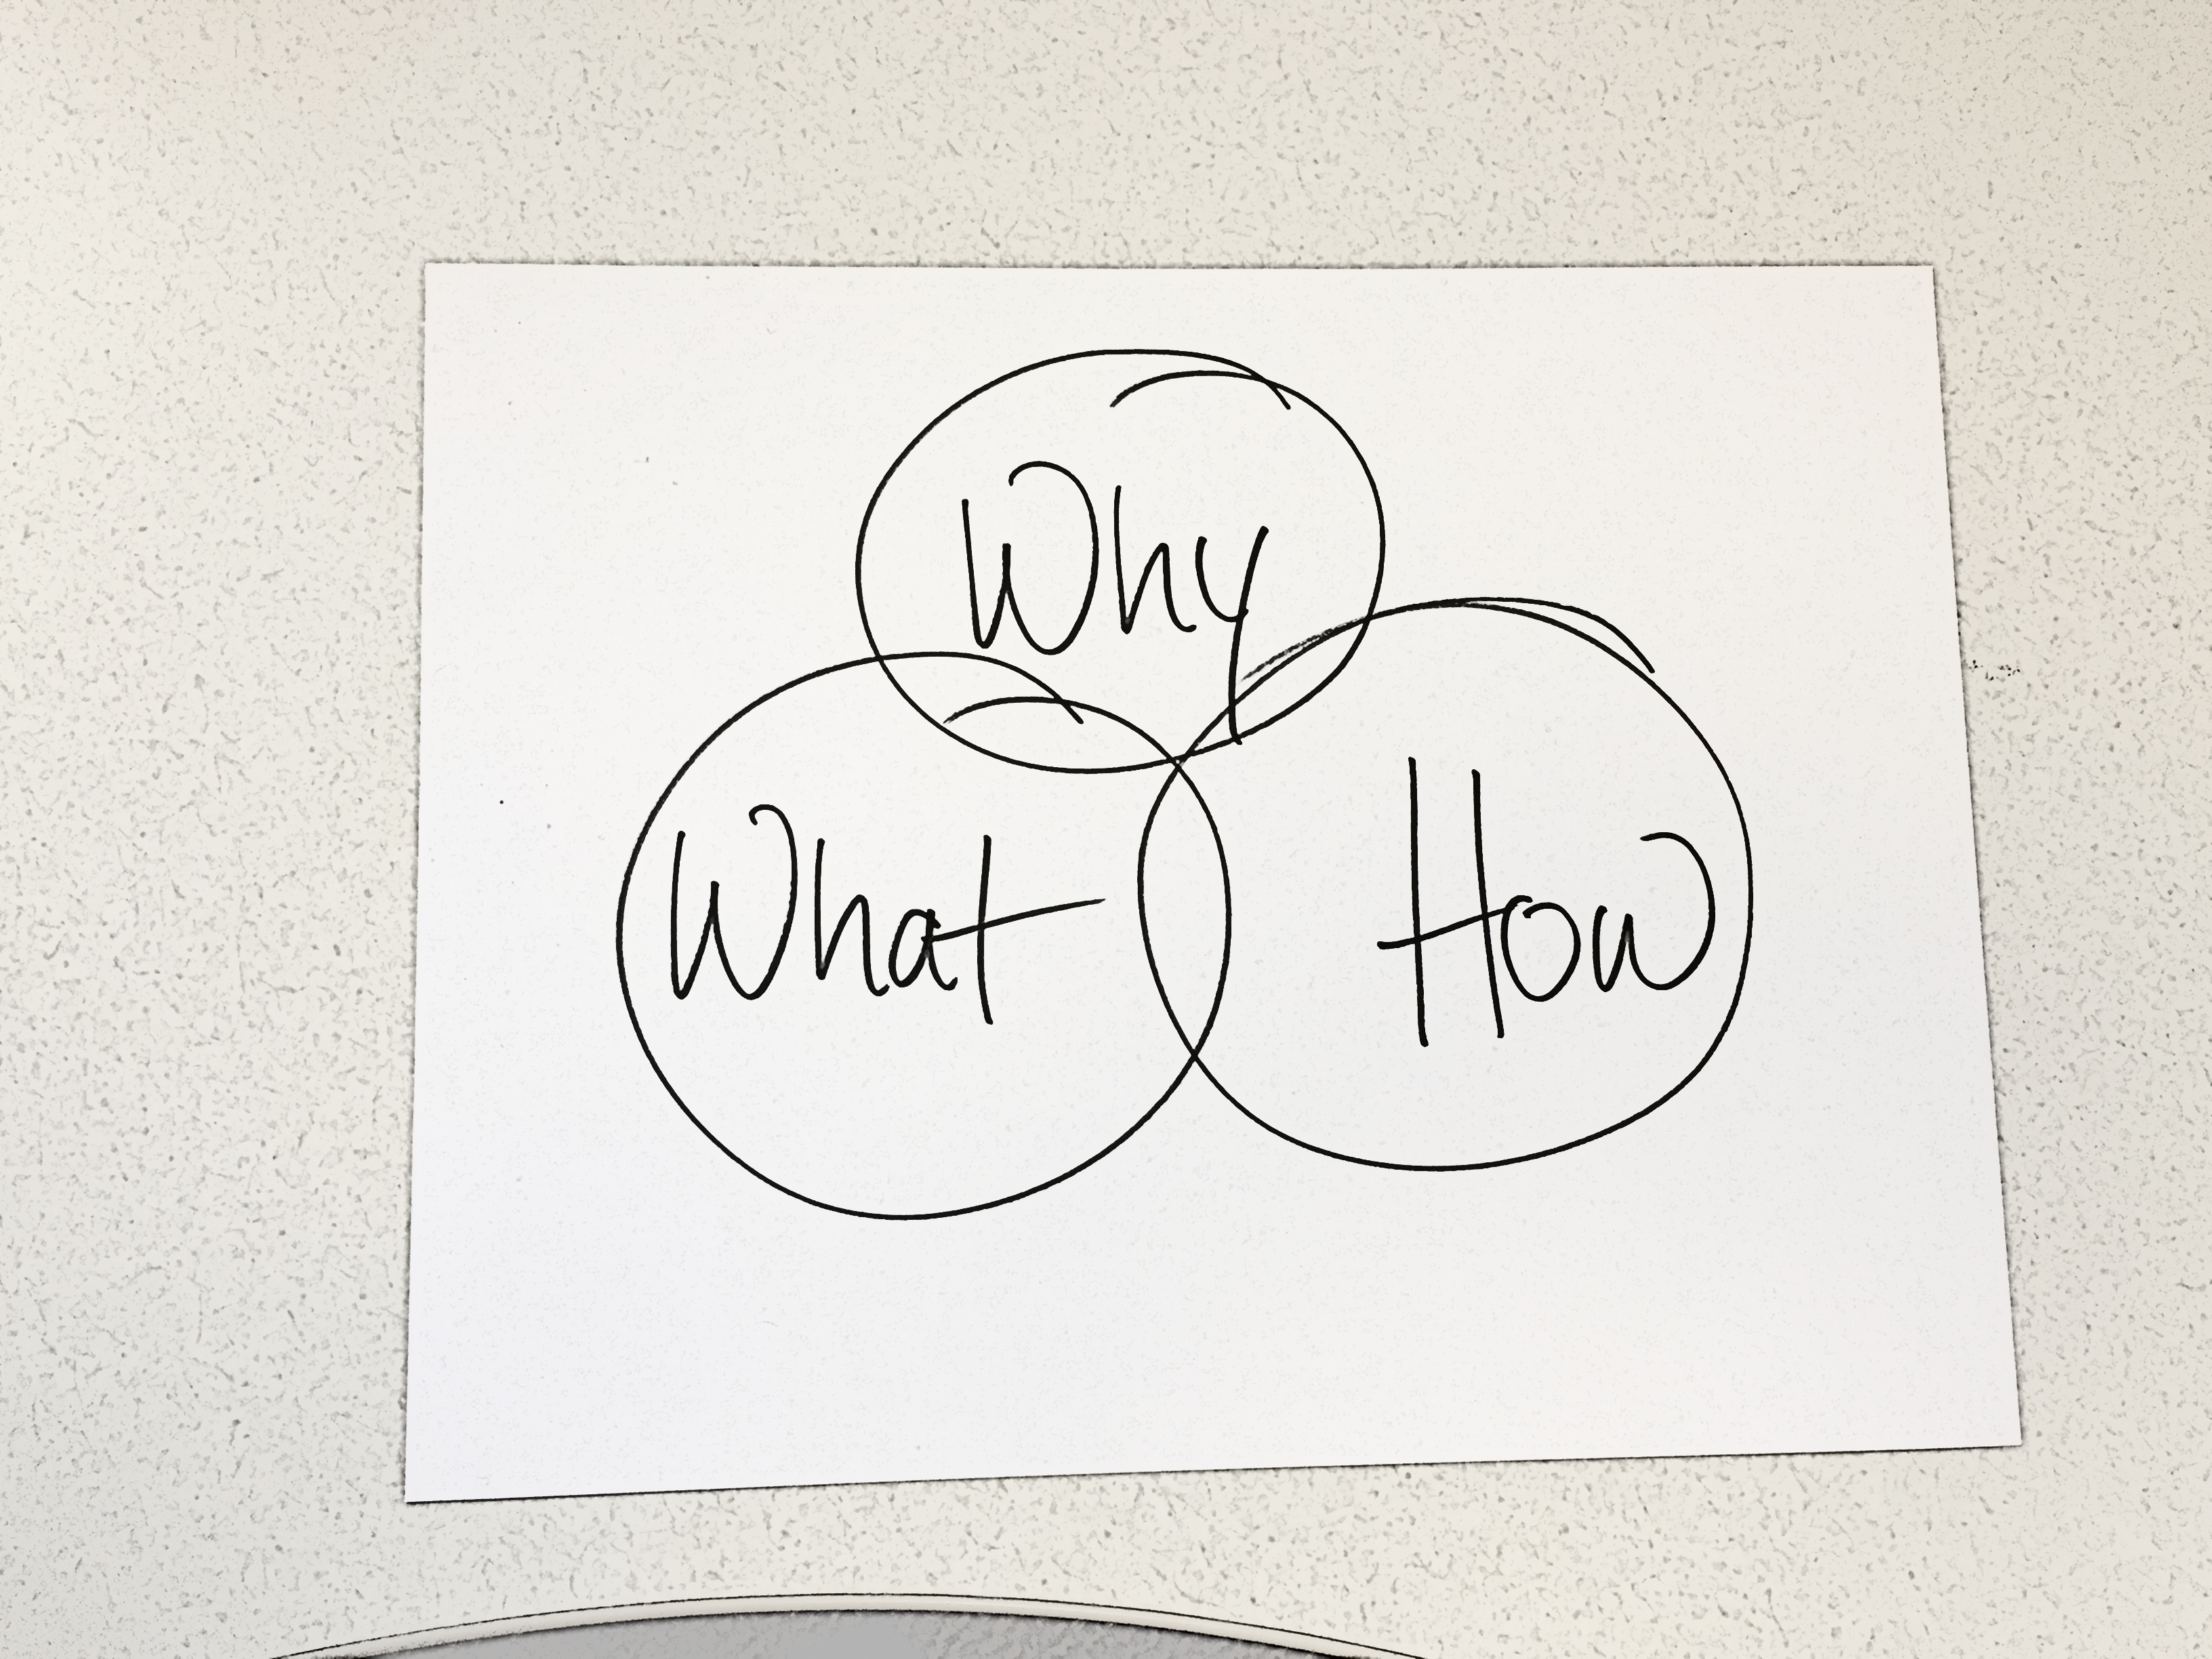 Why
What
How